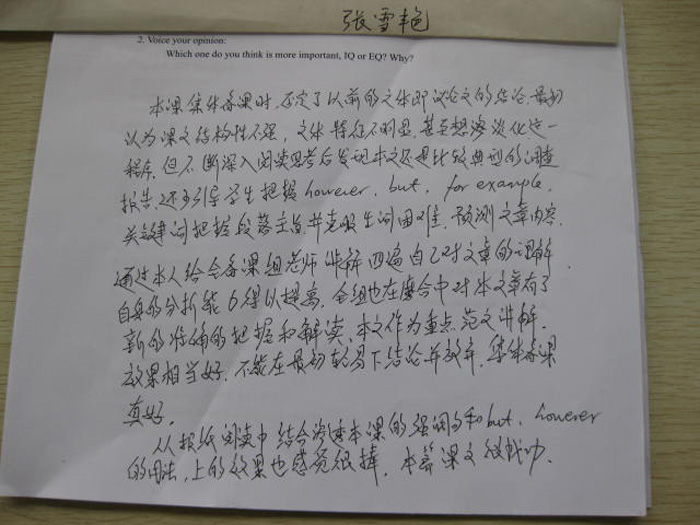 张雪艳
2. Voice your opinion:
Which one do you think is more important, IQ or EQ? Why?
本课集体备课时,否定了以前的文体即议论文的结论.最初
认为课文结构性不强,文体特征不明显,甚至想淡化这一
程序.但不断深入阅读思考后发现本文还是比较典型的调查
报告.还可引导学生把握however, but, for example,
关键词把握段落主旨,并克服生词困难,预测文章内容.
通过本人给全备课组老师讲解四遍自己对文章的理解.
自身的分析能力得以提高,全组也在磨合中对本文章有了
新的准确的把握和解读,本文作为重点范文讲解.
效果相当好.不能在最初轻易下结论并放弃.集体备课
真好.
从报纸阅读中结合渗透本课的强调句和but, however
的用法,上的效果也感觉很棒.本篇课文很成功.